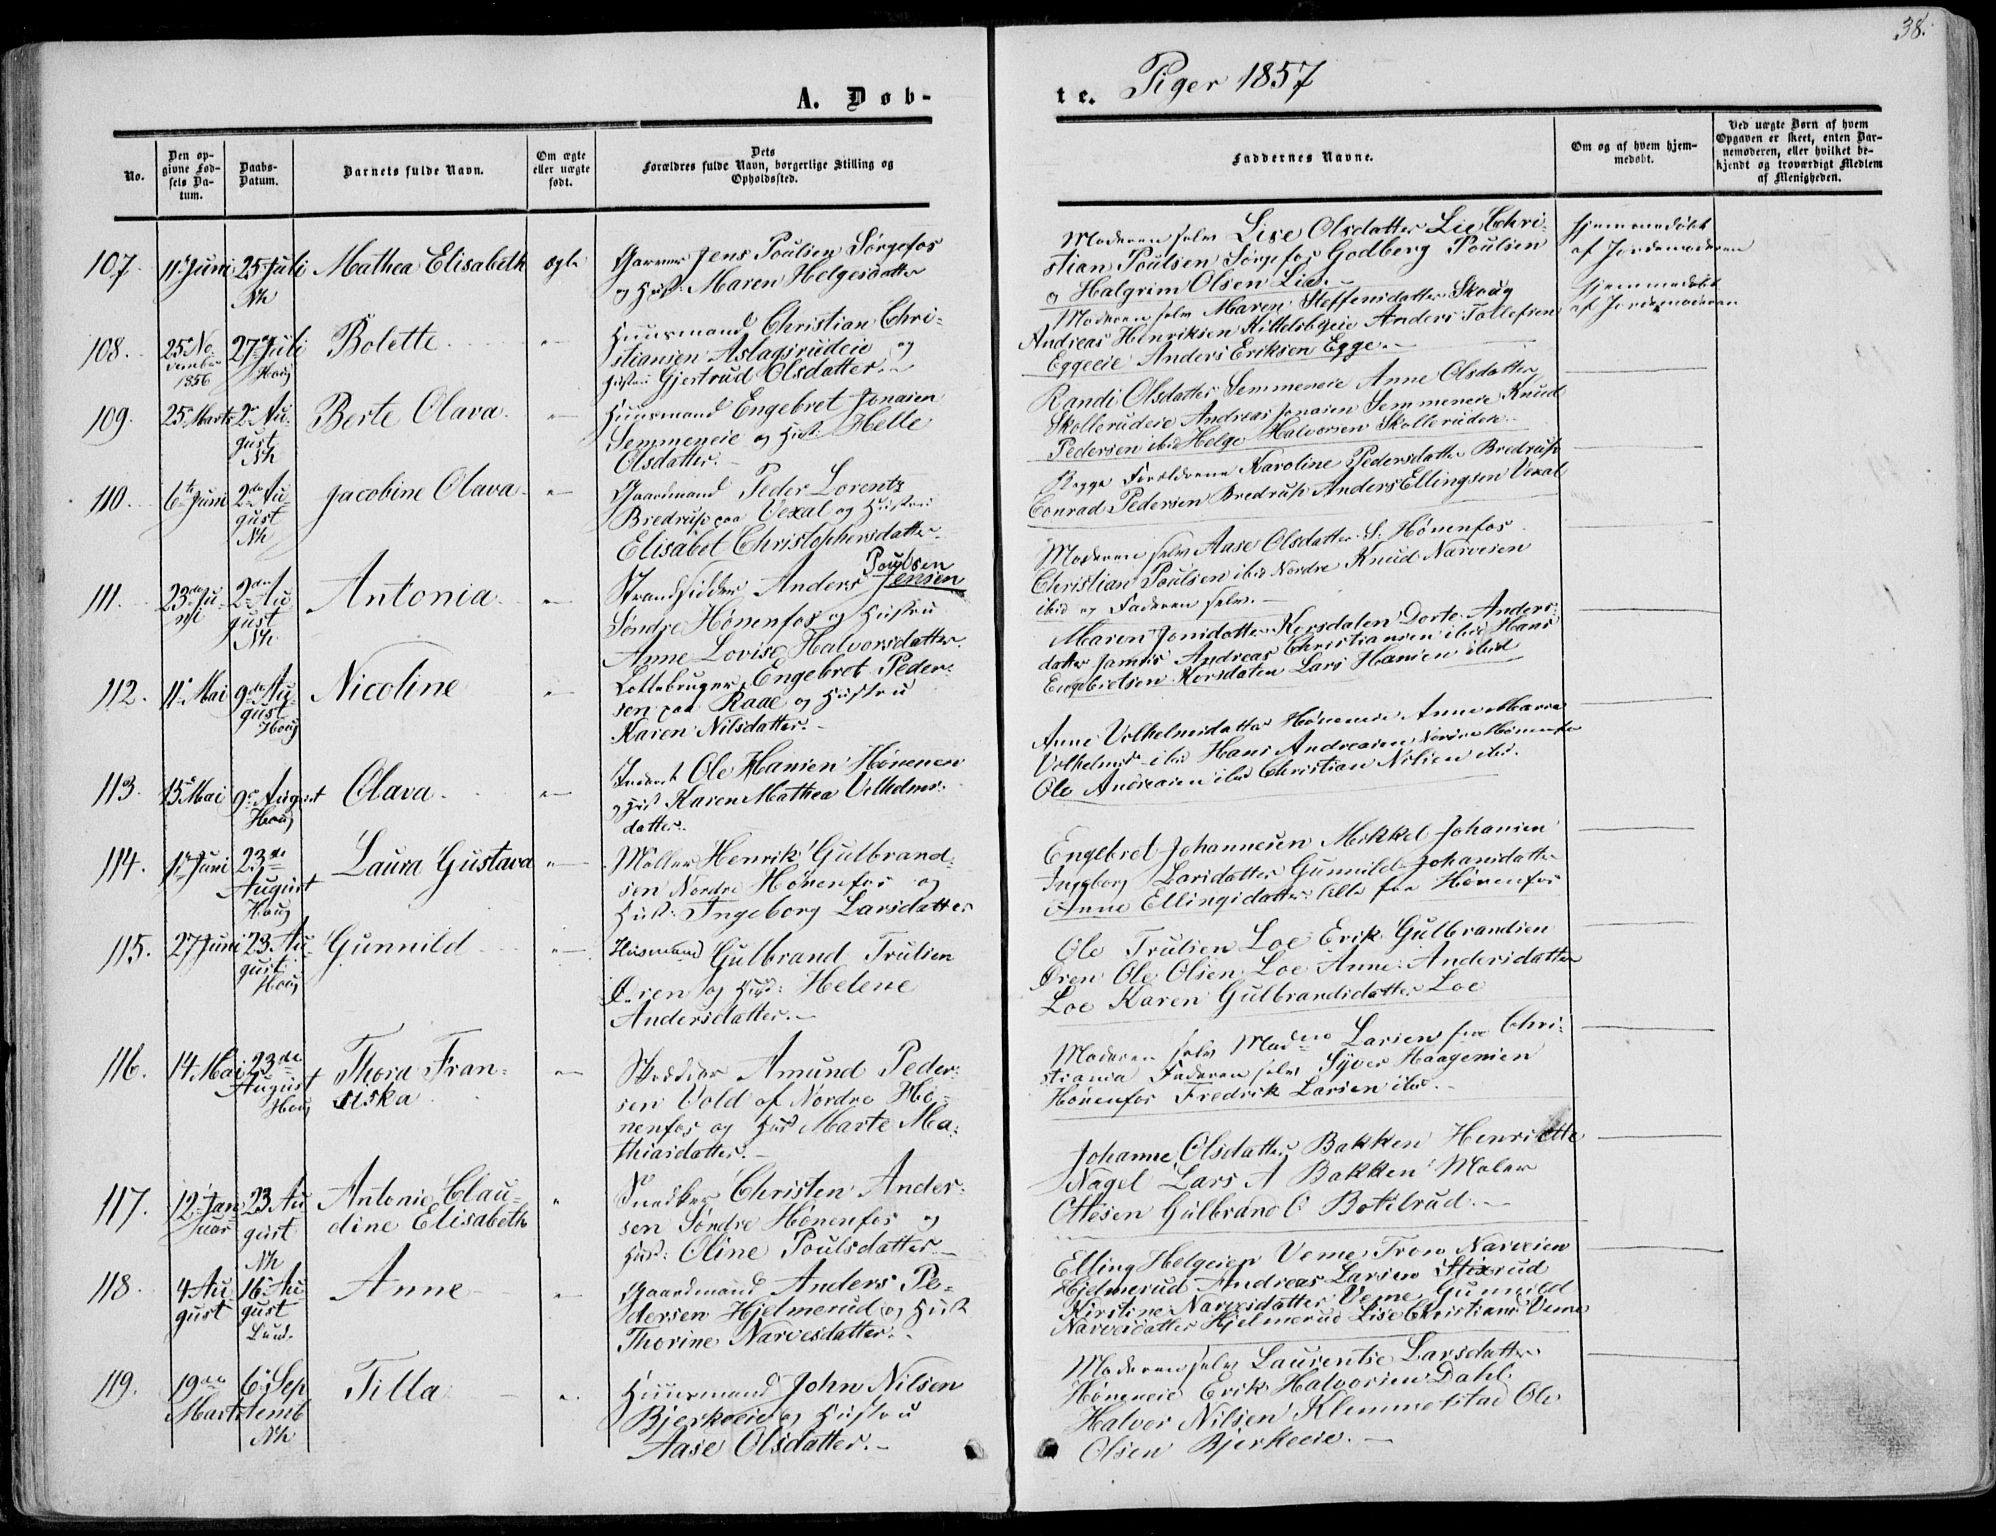 38.
A. Døb-
te. Piger 1857
No.
Den op-
givne Fød-
sels Da-
tum.
Daabs-
Datum.
Barnets fulde Navn.
Om ægte
eller uægte
født.
Dets
Forældres fulde Navn, borgerlige Stilling og
Opholdssted.
Faddernes Navne.
Om og af hvem hjem-
medøbt.
Ved uægte Børn af hvem
Opgaven er skeet, enten Bar-
nemoderen, eller hvilket be-
kjendt og troværdigt Medlem
af Menigheden.
107. 11 Juni 25 Juli Nh Mathea Elisabeth ægte
Jens Poulsen Sørgefos
og Hust: Maren Helgesdatter
Moderen selv Lise Olsdatter Lie Chri-
stian Poulsen Sørgefos Godberg Poulsen
og Halgrim Olsen Lie.
Hjemmedøbt
af Jordemoderen
108. 25 No-
vember
1856 27 Juli Houg Bolette "
Huusmand Christian Chri-
stiansen Aslagsrudeie og
Hustru Gjertrud Olsdatter.
Moderen selv Maren Steffensdatter Skoug
Andreas Henriksen Kittelsbyeie Anders Tollefsen
Eggeeie Anders Eriksen Egge.
Hjemmedøbt
af Jordemoderen
109. 25 Marts 2 Au-
gust
Nh Berte Olava "
Huusmand Engebret Jonasen
Semmeneie og Hust: Helle
Olsdatter.
Randi Olsdatter Semmeneie Anne Olsdatter
Skollerudeie Andreas Jonasen Semmeneie Knud
Pedersen ibid Helge Halvorsen Skollerudeie.
110. 6te Juni 2den Au-
gust
Nh Jacobine Olava "
Gaardmand Peder Lorentz
Bredrup paa Vexal og Hustru
Elisabet Christophersdatter.
Begge Forældrene Karoline Pedersdatter Bredrup
Conrad Pedersen Bredrup Anders Ellingsen Vexal
111. 23de Ju-
ni 2den Au-
gust
Nh Antonia "
Poulsen
Strandsidder Anders Jensen
Søndre Hønenfos og Hustru
Anne Lovise Halvorsdatter.
Moderen selv Aase Olsdatter S. Hønenfos
Christian Poulsen ibid Nordre Knud Narvesen
ibid og Faderen selv.
112. 11 Mai 9de Au-
gust
Houg Nicoline "
Lottebruger Engebret Peder-
sen paa Raae og Hustru
Karen Nilsdatter.
Maren Jonsdatter Korsdalen Dorte Anders-
datter Andreas Christiansen ibid Hans
Engebretsen Korsdalen Lars Hansen ibid
113. 13 Mai 9 August
Houg Olava "
Inderst Ole Hansen Hønenen
og Hust Karen Mathea Vilhelms-
datter.
Anne Vilhelmsdatter Høneneie Anne Marie
Vilhelmsd. ibid Hans Andreasen Nordre Hønenfos
Ole Andreasen ibid Christian Nilsen ibid.
114. 1 Juni 23de
August
Houg Laura Gustava "
Møller Henrik Gulbrand-
sen Nordre Hønenfos og
Hust: Ingeborg Larsdatter
Engebret Johannesen Mikkel Johansen
Ingeborg Larsdatter Gunnild Johansdatter
Anne Ellingsdatter Alle fra Hønenfos
115. 27 Juni 23 Au-
gust
Houg Gunnild "
Huusmand Gulbrand Trulsen
Øren og Hust: Helene
Andersdatter.
Ole Trulsen Loe Erik Gulbrandsen
Øren Ole Olsen Loe Anne Andersdatter
Loe Karen Gulbrandsdatter Loe
116. 14 Mai 23de
August
Houg Thora Fran-
siska "
Skrædder Amund Peder-
sen Vold af Nordre Hø-
nenfos og Hust Marte Ma-
thiasdatter.
Moderen selv Madme Larsen fra Chri-
stiania Faderen selv Syver Haagensen
Hønenfos Fredrik Larsen ibid.
117. 12 Jan-
uar 23 Au
gust
Nh Antonie Clau-
dine Elisabeth "
Snedker Christen Ander-
sen Søndre Hønenfos og
Hust: Oline Poulsdatter
Johanne Olsdatter Bakken Henriette
Nagel Lars A Bakken Maler
Ottesen Gulbrand O Botilrud.
118. 4 Au
gust 16 Au
gust
Lund. Anne "
Gaardmand Anders Pe-
dersen Hjelmerud og Hust
Thorine Narvesdatter.
Elling Helgesen Veme Tron Narvesen
Hjelmerud Andreas Larsen Stixrud
Kirstine Narvesdatter Veme Gunnild
Narvesdatter Hjelmerud Lise Christiansd Veme
119. 19de
Marts 6 Sep
temb
Nh Tilla "
Huusmand John Nilsen
Bjerkeeie og Hustru
Aase Olsdatter.
Moderen selv Laurentse Larsdatter
Høneneie Erik Halvorsen Dahl
Halvor Nilsen Klemmetstad Ole
Olsen Bjerkeeie.